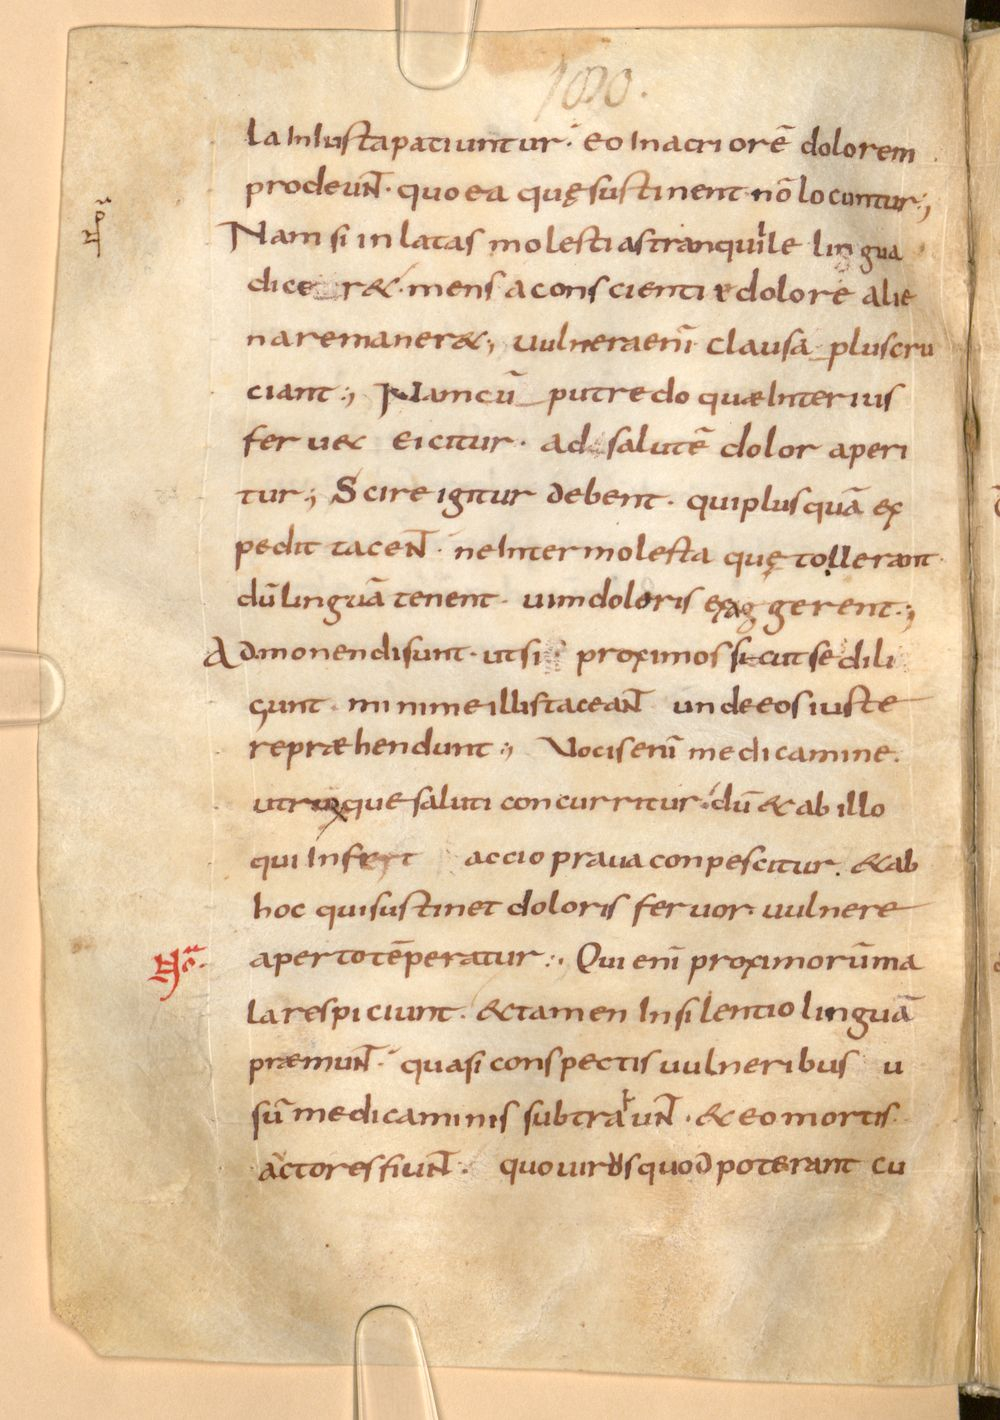 1090.
la iniusta patiuntur· eo in acriorē dolorem
prodeunt· quo ea quę sustinent nō locuntur;
Nam si inlatas molestias tranquille lingua
dice r&· mens a conscientia dolore alie
na remaner&; vulnera enī clausa plus cru
ciant; Nam cū putredo quae interius
feruet eicitur· ad salutē dolor aperi
tur; Scire igitur debent· qui plusquā ex
pedit tacent· ne inter molesta quę tollerant·
dū linguā tenent· uim doloris exaggerent;
Admonendi sunt· ut si proximos sicut se dili
gunt· minime illis taceant unde eos iuste
repraehendunt; Vocis enī medicamine·
utrisque saluti concurritur· dū & ab illo
qui infert accio praua conpescitur· & ab
hoc qui sustinet doloris feruor uulnere
aperto tēperatur:· Qui enī proximorū ma
la respiciunt· & tamen in silentio linguā
praemunt· quasi conspectis uulneribus u
sū medicaminis subtrahunt· & eo mortis
actores fiunt· quo uirus quod poterant cu